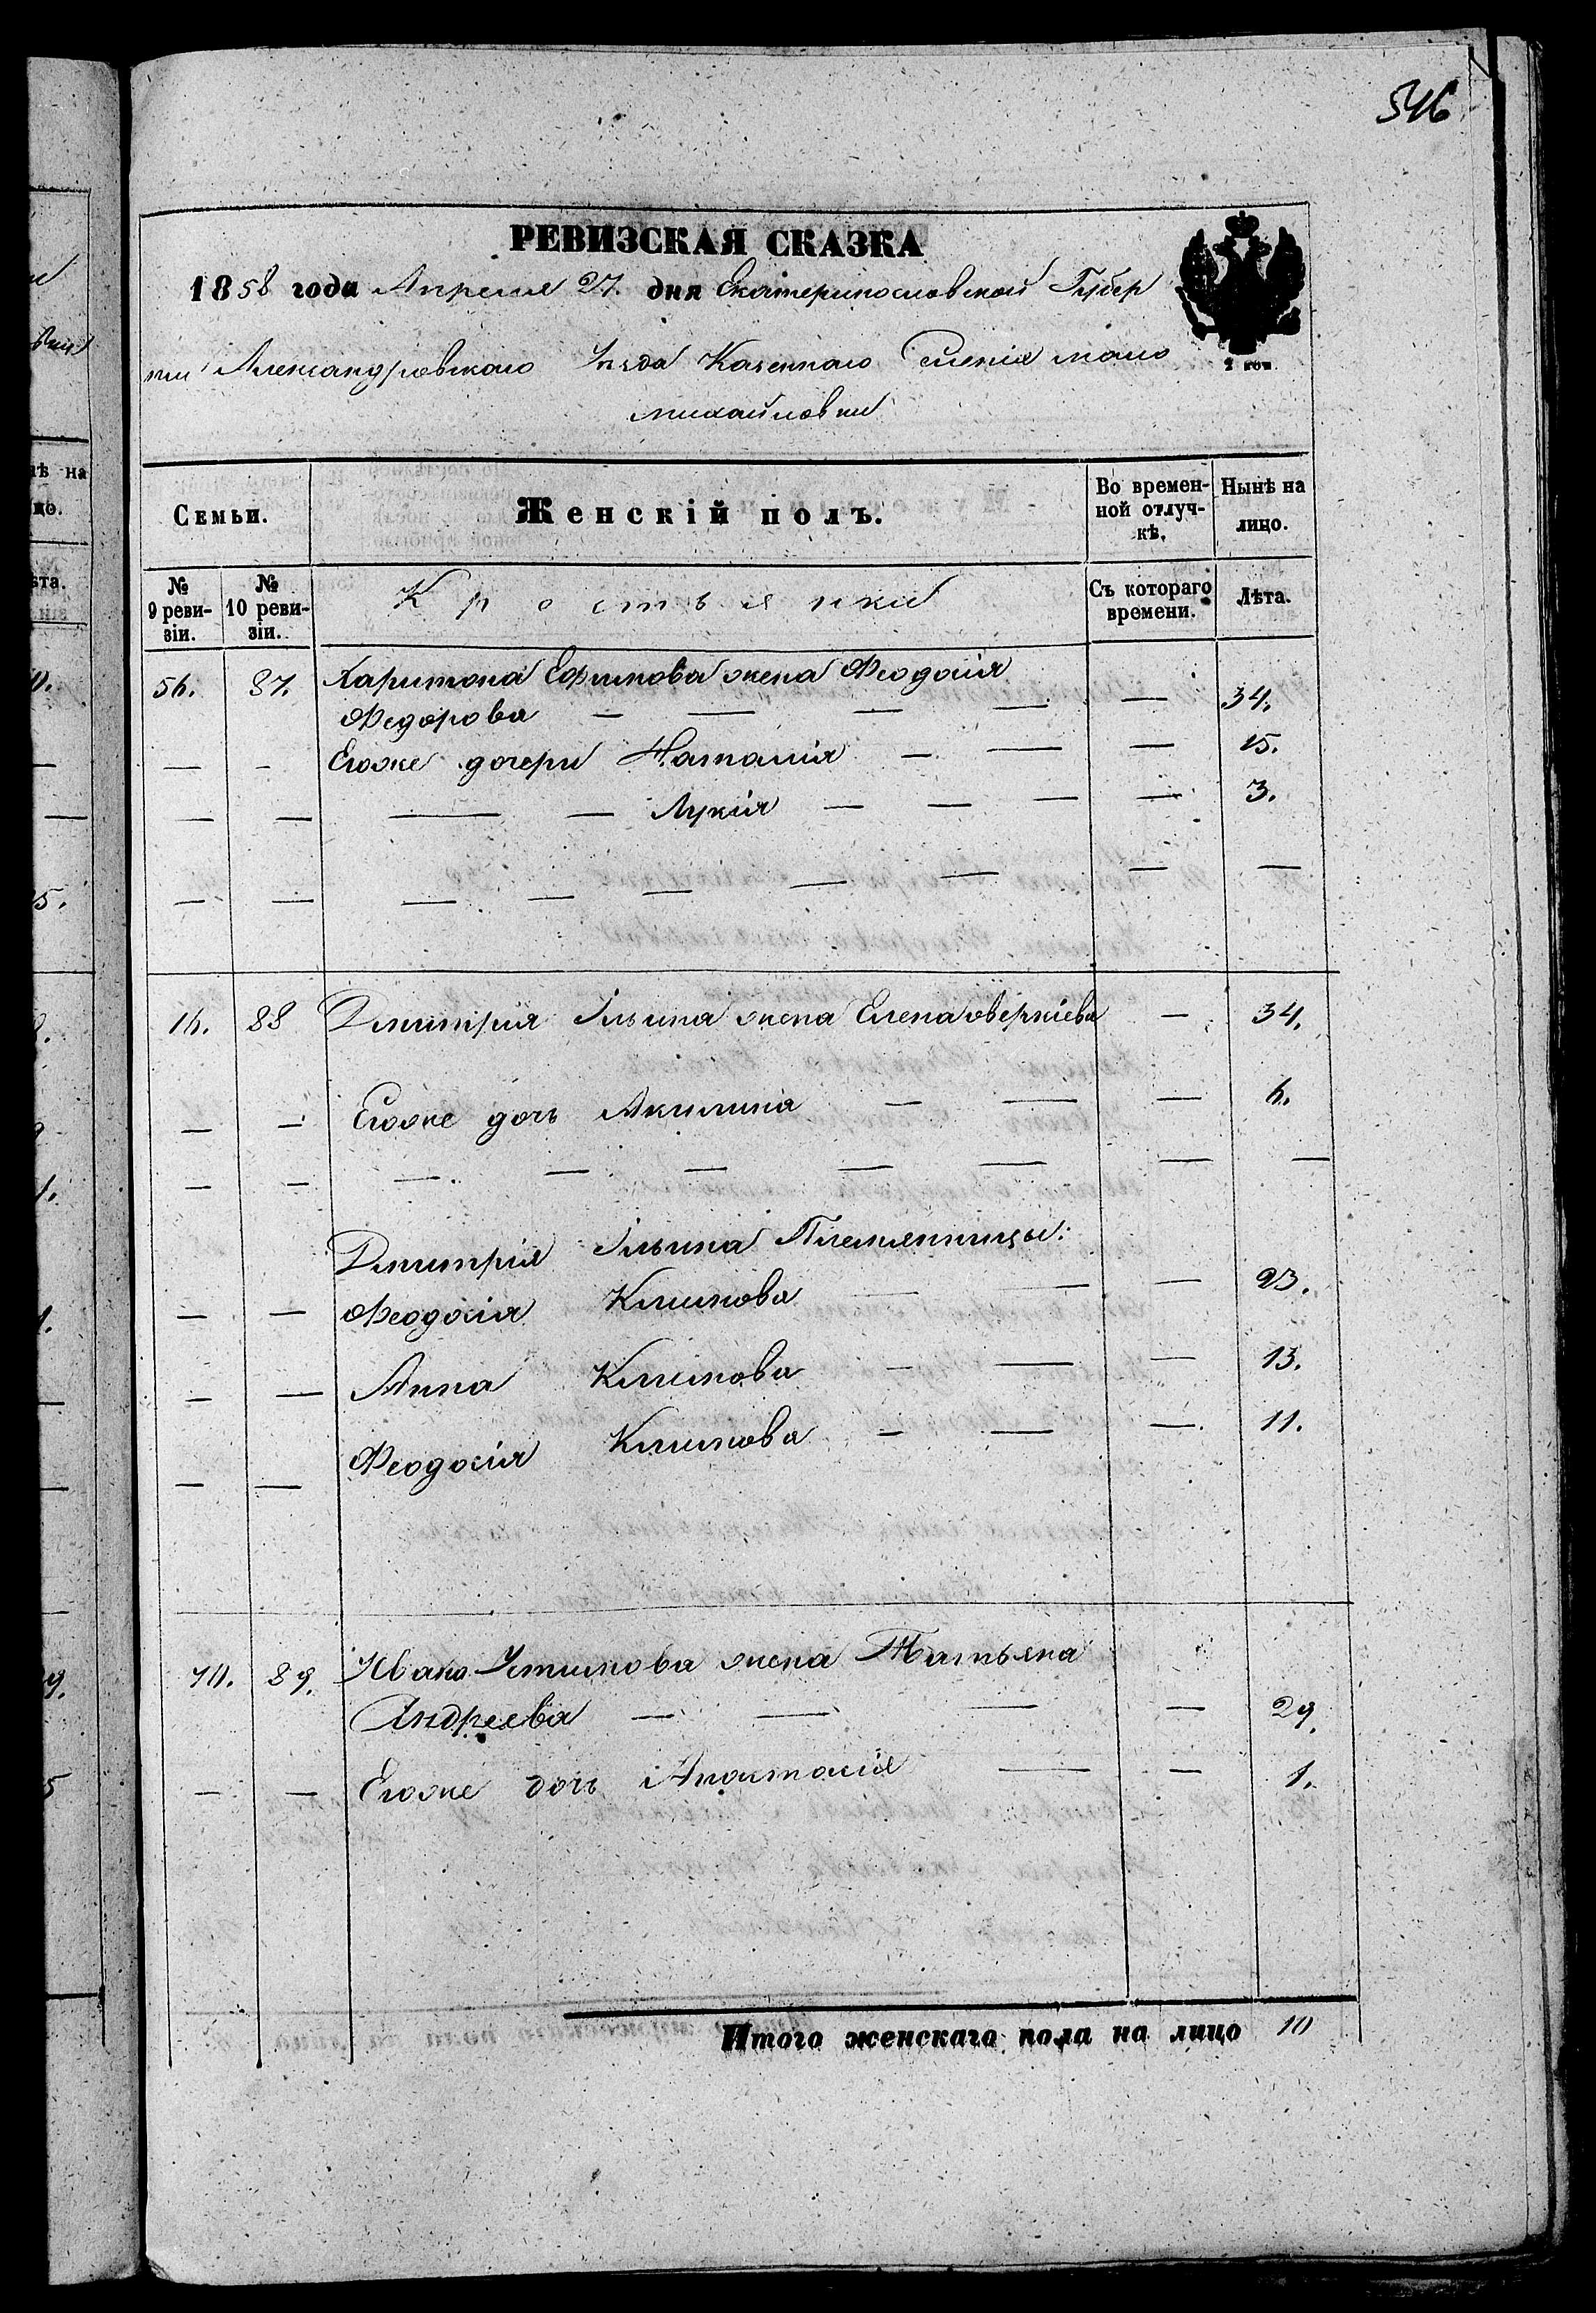 546
РЕВИЗСКАЯ СКАЗКА
1858 года Апреля 27. дня Екатеринославской Губер
нии Александровскаго Уезда Казеннаго Селенія мало
михайловки
2 коп.
Семьи. Женскій полъ. Во времен- Нынѣ на
ной отлуч- лицо.
кѣ.
№ № Крестьянки Съ котораго Лѣта.
9 реви- 10 реви- времени.
зіи. зіи.
56. 87. Харитона Ефимова жена Феодосія
Федорова — — — — — 34.
— — Егоже дочери Наталія — — — 15.
— — — — Лукія — — — — 3.
— — — — — — — — —
16. 88 Дмитрия Ильина жена Елена оверкіева — 34.
— — Егоже дочь Акилина — — — 6.
— — — — — — — — —
Дмитрія Ильина Племянницы:
— — Феодосія Климова — — — 23.
— — Анна Климова — — — 13.
— — Феодосія Климова — — — 11.
70. 89. Ивана Устимова жена Татьяна
Андреева — — — — 29.
— — Егоже дочь Анастасія — — 1.
Итого женскаго пола на лицо 10